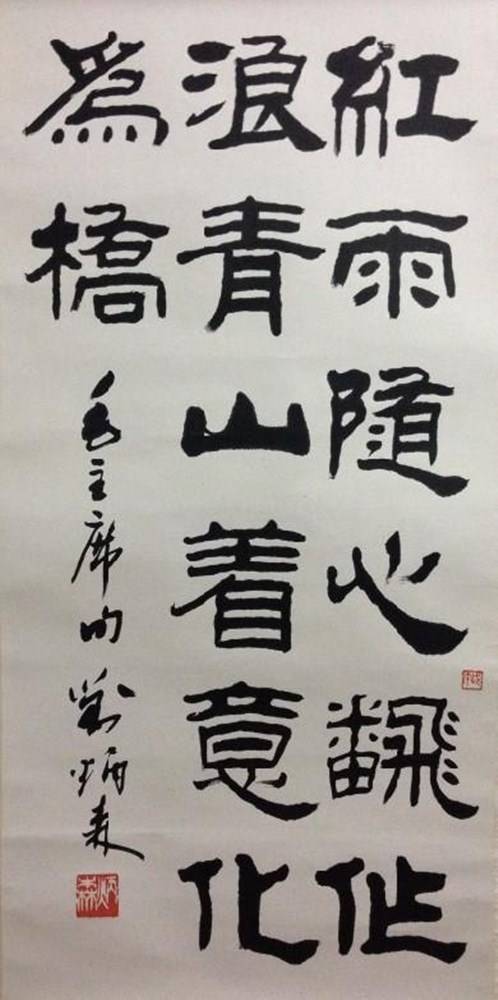 紅雨隨心飜作
浪青山着意化
為橋
毛主席句 劉炳森
炳森